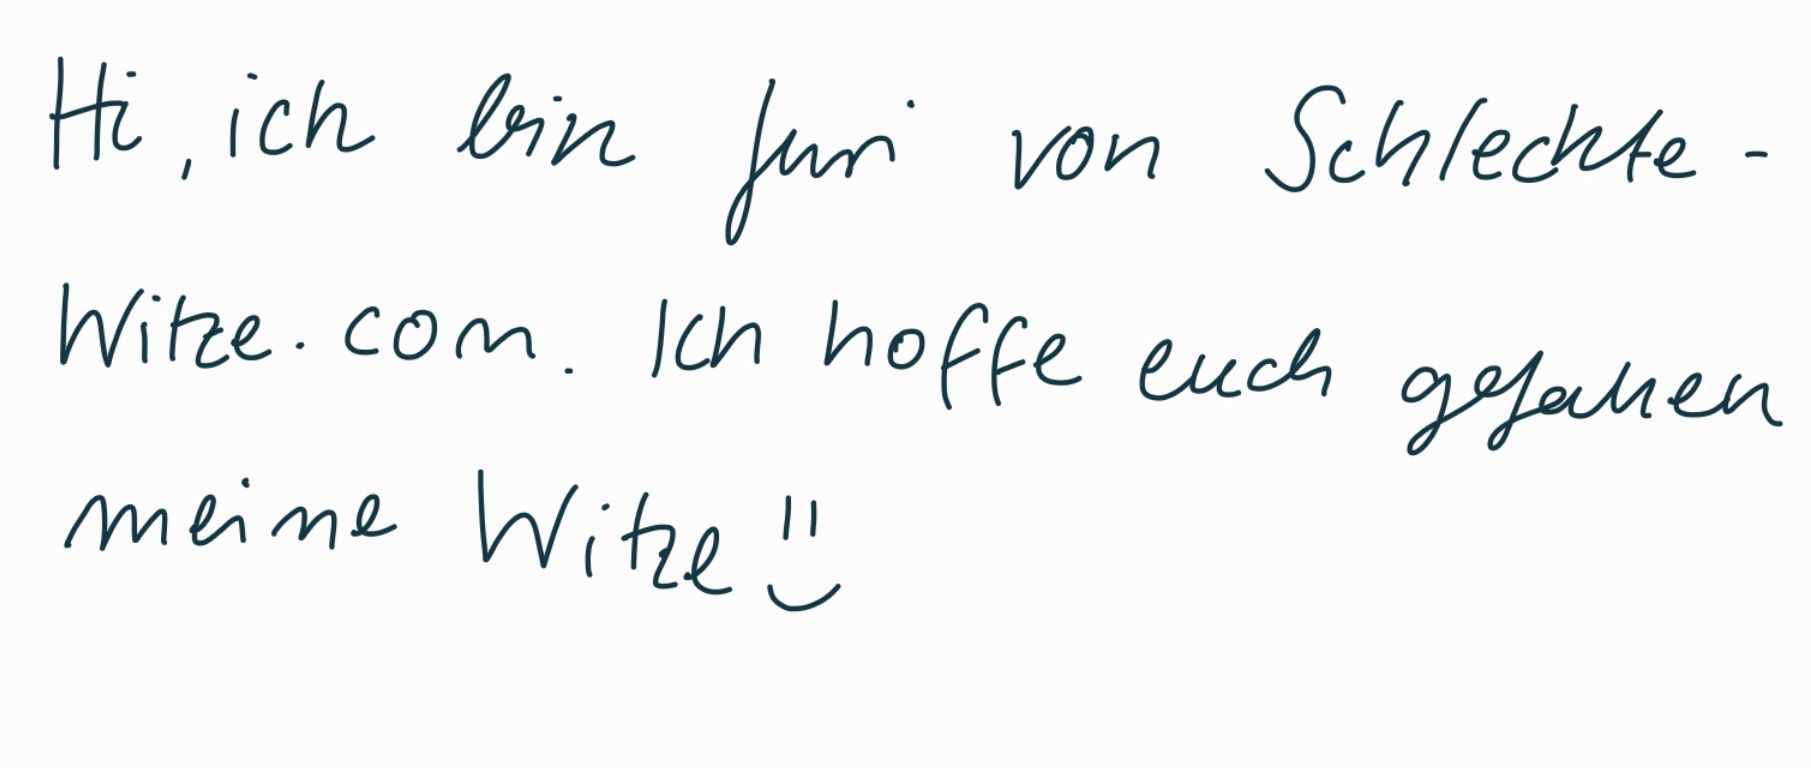 Hi, ich bin Juri von Schlechte-
Witze.com. Ich hoffe euch gefallen
meine Witze